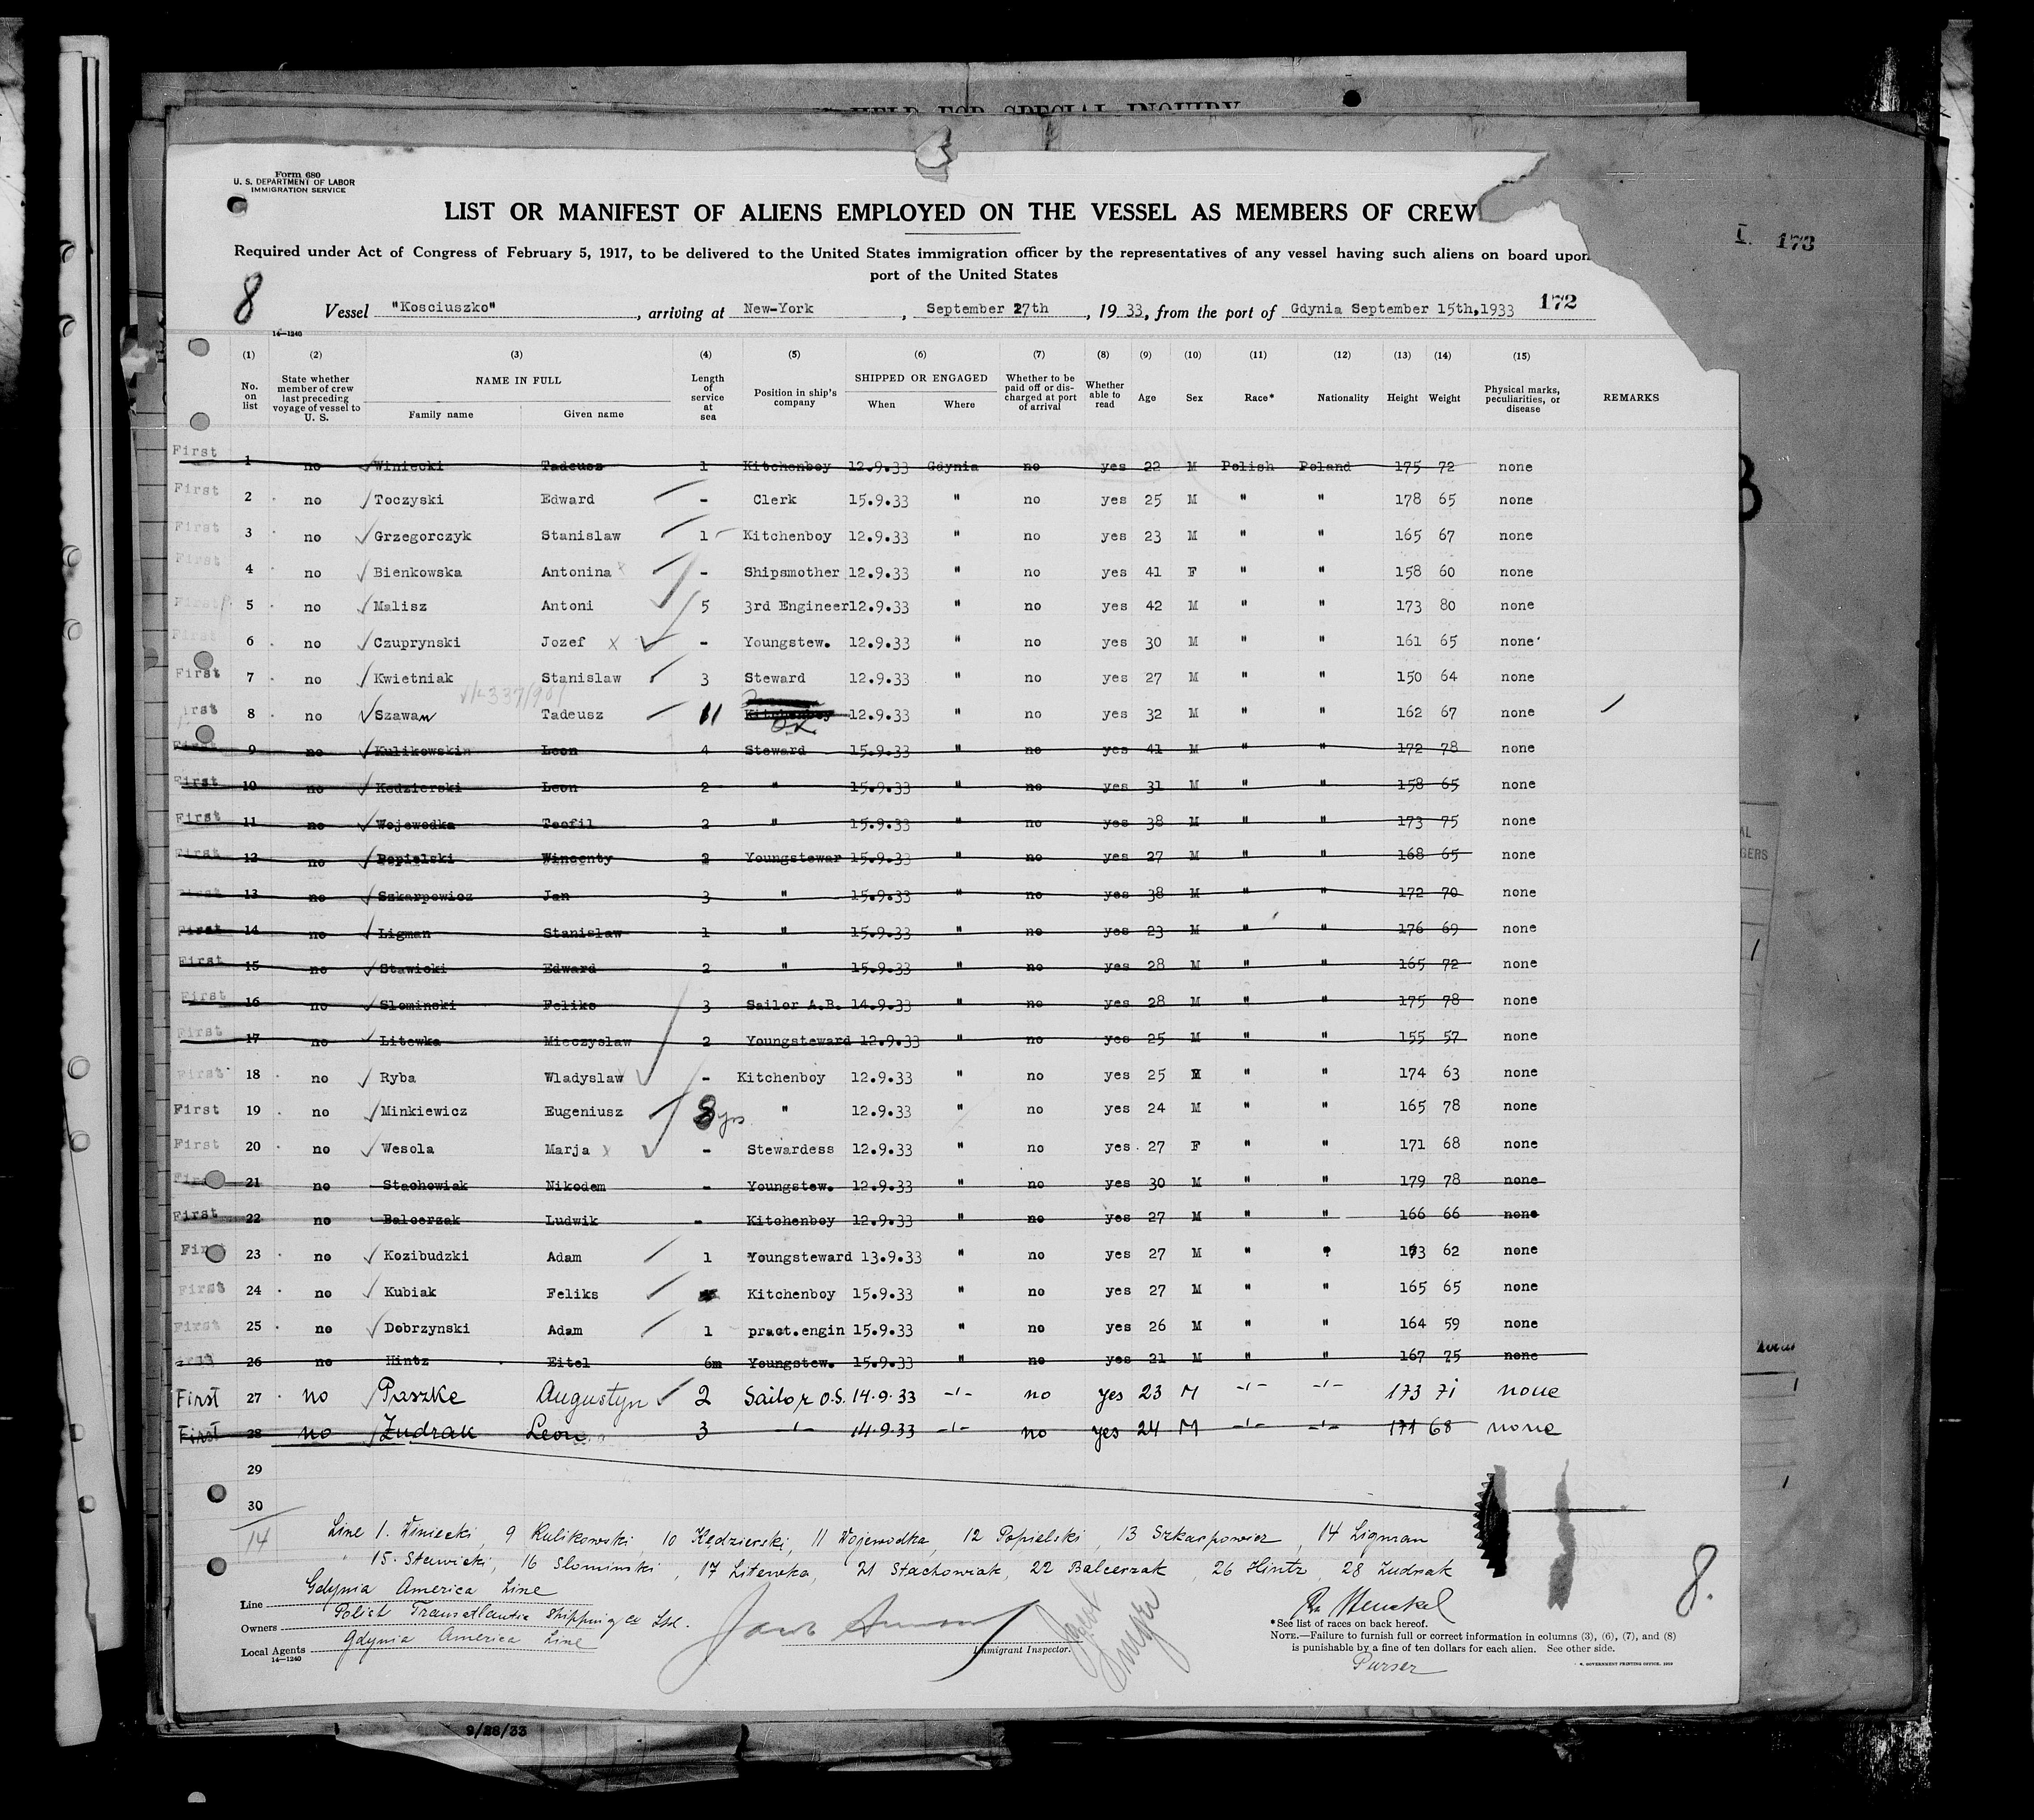 HELD FOR SPECIAL INQUIRY
Form 680
U. S. DEPARTMENT OF LABOR
IMMIGRATION SERVICE
LIST OR MANIFEST OF ALIENS EMPLOYED ON THE VESSEL AS MEMBERS OF CREW
I. 173
Required under Act of Congress of February 5, 1917, to be delivered to the United States immigration officer by the representatives of any vessel having such aliens on board upon
port of the United States
8 Vessel "Kosciuszko", arriving at New-York, September 27th, 1933, from the port of Gdynia September 15th,1933 172
14—1240
(1) (2) (3) (4) (5) (6) (7) (8) (9) (10) (11) (12) (13) (14) (15)
No. on list State whether member of crew last preceding voyage of vessel to U. S. NAME IN FULL Family name Given name Length of service at sea Position in ship's company SHIPPED OR ENGAGED When Where Whether to be paid off or discharged at port of arrival Whether able to read Age Sex Race* Nationality Height Weight Physical marks, peculiarities, or disease REMARKS
First 1 no Winiecki Tadeusz 1 Kitchenboy 12.9.33 Gdynia no yes 22 M Polish Poland 175 72 none
First 2 no Toczyski Edward - Clerk 15.9.33 " no yes 25 M " " 178 65 none
First 3 no Grzegorczyk Stanislaw 1 Kitchenboy 12.9.33 " no yes 23 M " " 165 67 none
First 4 no Bienkowska Antonina - Shipsmother 12.9.33 " no yes 41 F " " 158 60 none
First 5 no Malisz Antoni 5 3rd Engineer 12.9.33 " no yes 42 M " " 173 80 none
First 6 no Czuprynski Jozef x - Youngstew. 12.9.33 " no yes 30 M " " 161 65 none
First 7 no Kwietniak Stanislaw 3 Steward 12.9.33 " no yes 27 M " " 150 64 none
First 8 no Szawan Tadeusz 11 Kitchenboy 12.9.33 " no yes 32 M " " 162 67 none
First 9 no Kulikowski Leon 4 Steward 15.9.33 " no yes 41 M " " 172 78 none
First 10 no Kedzierski Leon 2 " 15.9.33 " no yes 31 M " " 158 65 none
First 11 no Wojewodka Teofil 2 " 15.9.33 " no yes 38 M " " 173 75 none
First 12 no Popielski Wincenty 2 Youngstewar 15.9.33 " no yes 27 M " " 168 65 none
First 13 no Szkarpowicz Jan 3 " 15.9.33 " no yes 38 M " " 172 70 none
First 14 no Ligman Stanislaw 1 " 15.9.33 " no yes 23 M " " 176 69 none
First 15 no Stawicki Edward 2 " 15.9.33 " no yes 28 M " " 165 72 none
First 16 no Slominski Feliks 3 Sailor A.B. 14.9.33 " no yes 28 M " " 175 78 none
First 17 no Litewka Mieczyslaw 2 Youngsteward 12.9.33 " no yes 25 M " " 155 57 none
First 18 no Ryba Wladyslaw - Kitchenboy 12.9.33 " no yes 25 M " " 174 63 none
First 19 no Minkiewicz Eugeniusz 8 yrs " 12.9.33 " no yes 24 M " " 165 78 none
First 20 no Wesola Marja x - Stewardess 12.9.33 " no yes 27 F " " 171 68 none
First 21 no Stachowiak Nikodem - Youngstew. 12.9.33 " no yes 30 M " " 179 78 none
First 22 no Balcerzak Ludwik - Kitchenboy 12.9.33 " no yes 27 M " " 166 66 none
First 23 no Kozibudzki Adam 1 Youngsteward 13.9.33 " no yes 27 M " " 173 62 none
First 24 no Kubiak Feliks Kitchenboy 15.9.33 " no yes 27 M " " 165 65 none
First 25 no Dobrzynski Adam 1 pract.engin 15.9.33 " no yes 26 M " " 164 59 none
First 26 no Hintz Eitel 6m Youngstew. 15.9.33 " no yes 21 M " " 167 75 none
First 27 no Paszke Augustyn 2 Sailor O.S. 14.9.33 -"- no yes 23 M -"- -"- 173 71 none
First 28 no Zudrak Leon 3 -"- 14.9.33 -"- no yes 24 M -"- -"- 171 68 none
29
30
14
Line 1. Winiecki, 9 Kulikowski, 10 Kędzierski, 11 Wojewodka, 12 Popielski, 13 Szkarpowicz, 14 Ligman
" 15. Stawicki, 16 Slominski, 17 Litewka, 21 Stachowiak, 22 Balcerzak, 26 Hintz, 28 Zudrak
Line Gdynia America Line
Owners Polish Transatlantic Shipping Co Ltd.
Local Agents Gdynia America Line
14—1240
Immigrant Inspector.
*See list of races on back hereof.
NOTE.—Failure to furnish full or correct information in columns (3), (6), (7), and (8)
is punishable by a fine of ten dollars for each alien. See other side.
Purser
8.
9/28/33